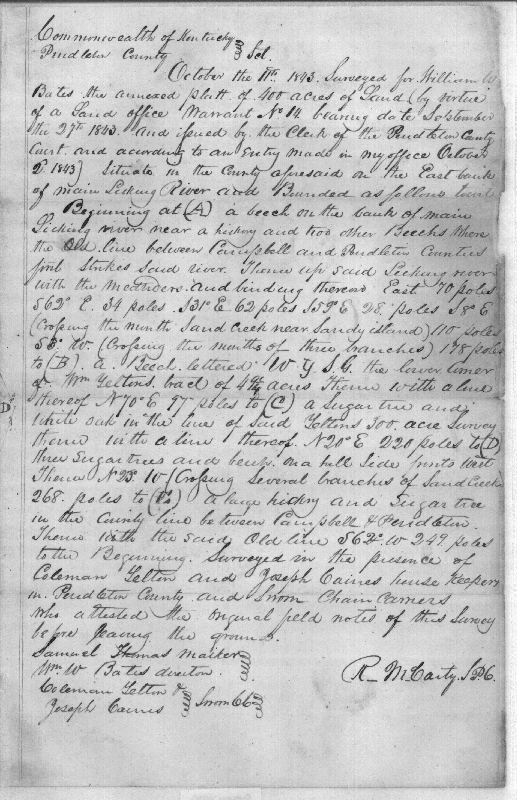 Commonwealth of Kentucky
Pendleton County Sct.
October the 11th 1843. Surveyed for William W
Bates the annexed platt of 400 acres of Land (by virtue
of a Land office Warrant No 14 bearing date September
the 27th 1843 and issued by the Clerk of the Pendleton County
Court and according to an Entry made in my office October
2d 1843) Situate in the County aforesaid on the East bank
of main Licking River and Bounded as follows towit
Beginning at (A) a beech on the bank of main
Licking river near a hickory and two other Beechs Where
the Old line between Campbell and Pendleton Counties
first strikes said river. Thence up said Licking river
with the meanders and binding thereon East 70 poles
S62° E. 34 poles S31° E 62 poles S53° E 28 poles S8° E
(Crossing the mouth Sand Creek near Sandy island) 110 poles
S3° W. (Crossing the mouths of three branches) 178 poles
to (B) a Beech lettered W Y S. G. the lower corner
of Wm Yeltons tract of acres Thence with a line
thereof N70° E 97 poles to (C) a Sugar tree and
White oak in the line of said Yeltons 300 acre Survey
thence with a line thereof N20° E 220 poles to (D)
three Sugar trees and beech on a hill Side fronts West
Thence N23° W (Crossing Several branches of Sand Creek
268 poles to (E) a large hickory and Sugar tree
in the County line between Campbell & Pendleton
Thence With the said Old line S62° W 249 poles
to the Beginning. Surveyed in the presence of
Coleman Yelton and Joseph Caines house keepers
in Pendleton County and Sworn Chain Carriers
who attested the original field notes of this Survey
before leaving the ground.
Samuel Thomas marker
Wm W Bates director
Coleman Yelton &
Joseph Caines Sworn CC
R McCarty. S.P.C.